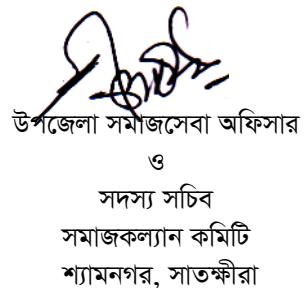 উপজেলা সমাজসেবা অফিসার
ও
সদস্য সচিব
সমাজকল্যান কমিটি
শ্যামনগর, সাতক্ষীরা